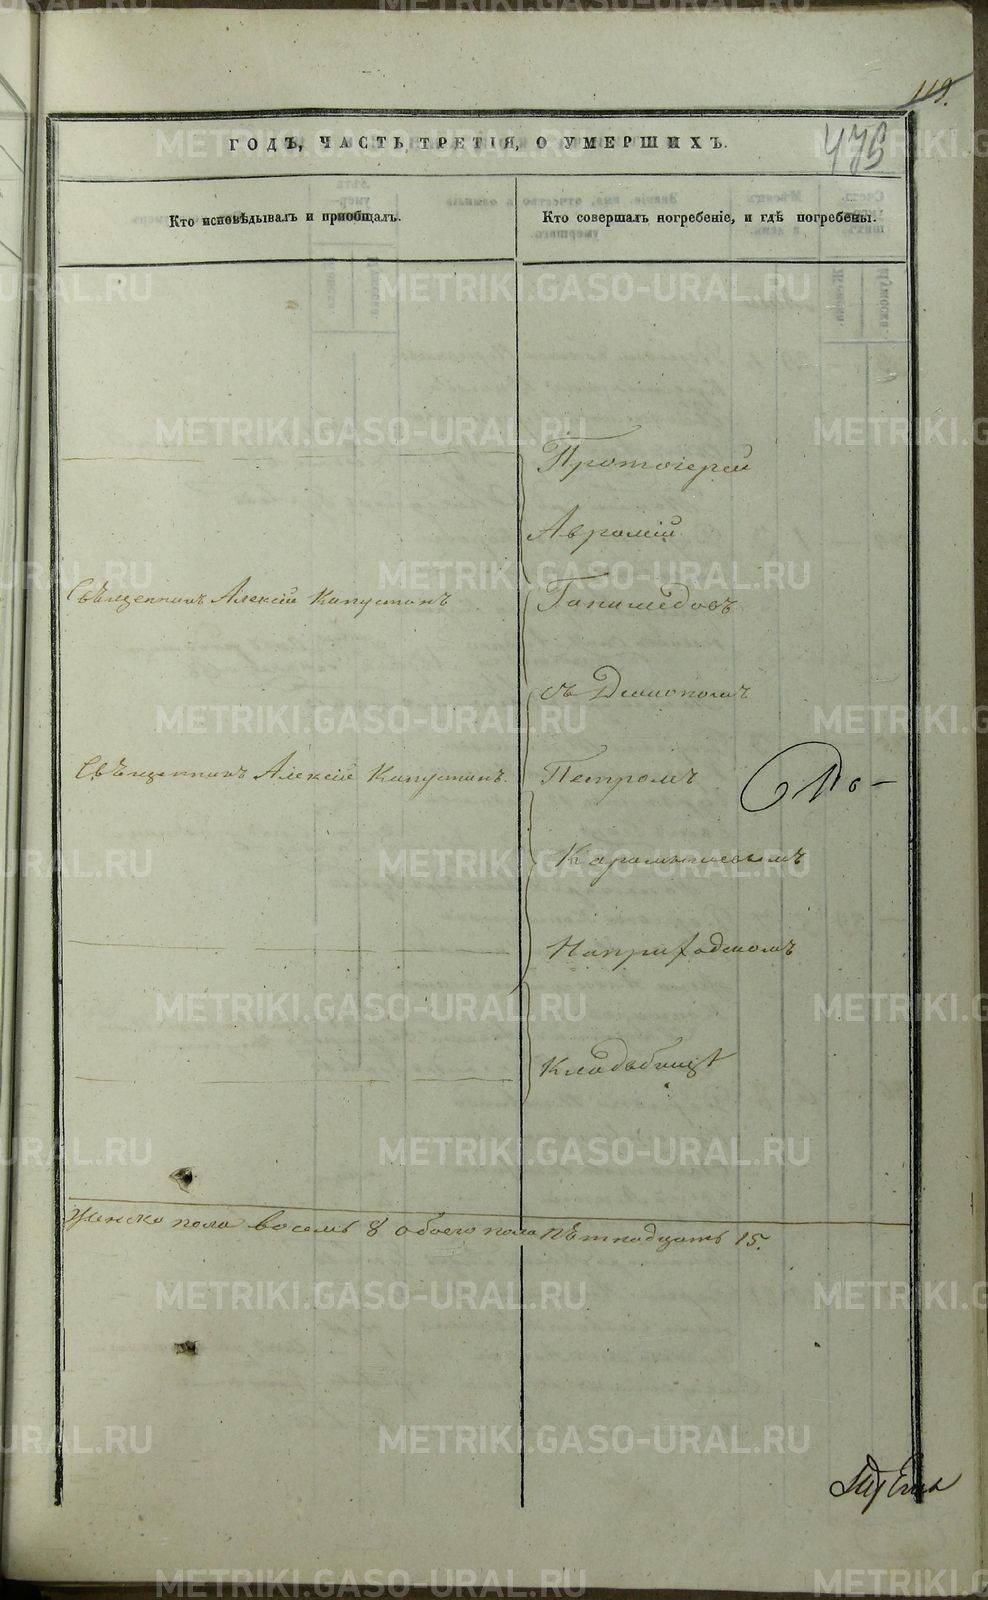 119.
ГОДЪ, ЧАСТЬ ТРЕТІЯ, О УМЕРШИХЪ.
476
Кто исповѣдывалъ и пріобщалъ.
Кто совершалъ погребеніе, и гдѣ погребены.
Протоіерей
Авромій
Свѣщенникъ Алексій Капустинъ
Ганимедовъ
съ Диякономъ
Свѣщенникъ Алексій Капустинъ.
Петромъ
Карамышевымъ
На приходскомъ
Кладьбищѣ
Женска пола восемь 8 обоего пола пѣтнадцать 15.
METRIKI.GASO-URAL.RU